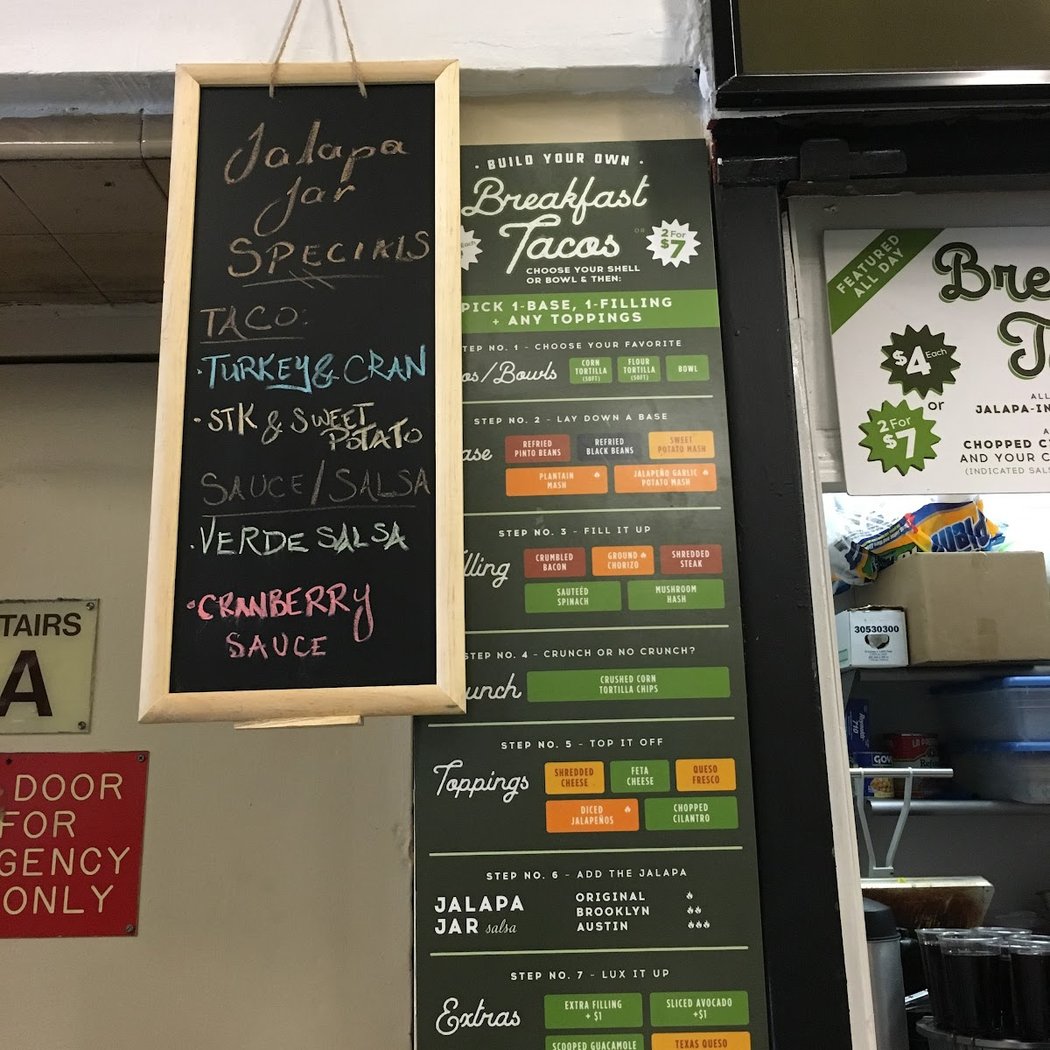 Jalapa
Jar
SPECIALS
TACO:
·TURKEY & CRAN
·STK & SWEET
POTATO
SAUCE/SALSA
·VERDE SALSA
·CRANBERRY
SAUCE
· BUILD YOUR OWN ·
Breakfast
Tacos
Each
OR
2 FOR
$7
CHOOSE YOUR SHELL
OR BOWL & THEN:
PICK 1-BASE, 1-FILLING
+ ANY TOPPINGS
TEP NO. 1 - CHOOSE YOUR FAVORITE
os/Bowls
CORN
TORTILLA
(SOFT)
FLOUR
TORTILLA
(SOFT)
BOWL
STEP NO. 2 - LAY DOWN A BASE
ase
REFRIED
PINTO BEANS
REFRIED
BLACK BEANS
SWEET
POTATO MASH
PLANTAIN
MASH
JALAPEÑO GARLIC
POTATO MASH
STEP NO. 3 - FILL IT UP
illing
CRUMBLED
BACON
GROUND
CHORIZO
SHREDDED
STEAK
SAUTEÉD
SPINACH
MUSHROOM
HASH
STEP NO. 4 - CRUNCH OR NO CRUNCH?
unch
CRUSHED CORN
TORTILLA CHIPS
STEP NO. 5 - TOP IT OFF
Toppings
SHREDDED
CHEESE
FETA
CHEESE
QUESO
FRESCO
DICED
JALAPEÑOS
CHOPPED
CILANTRO
STEP NO. 6 - ADD THE JALAPA
JALAPA
JAR salsa
ORIGINAL
BROOKLYN
AUSTIN
STEP NO. 7 - LUX IT UP
Extras
EXTRA FILLING
+ $1
SLICED AVOCADO
+$1
SCOOPED GUACAMOLE
TEXAS QUESO
FEATURED
ALL DAY
Bre
T
$4 Each
or
2 FOR
$7
ALL
JALAPA-IN
A
CHOPPED C
AND YOUR C
(INDICATED SAL
30530300
Reynolds
710
GOV
TAIRS
A
DOOR
FOR
GENCY
ONLY